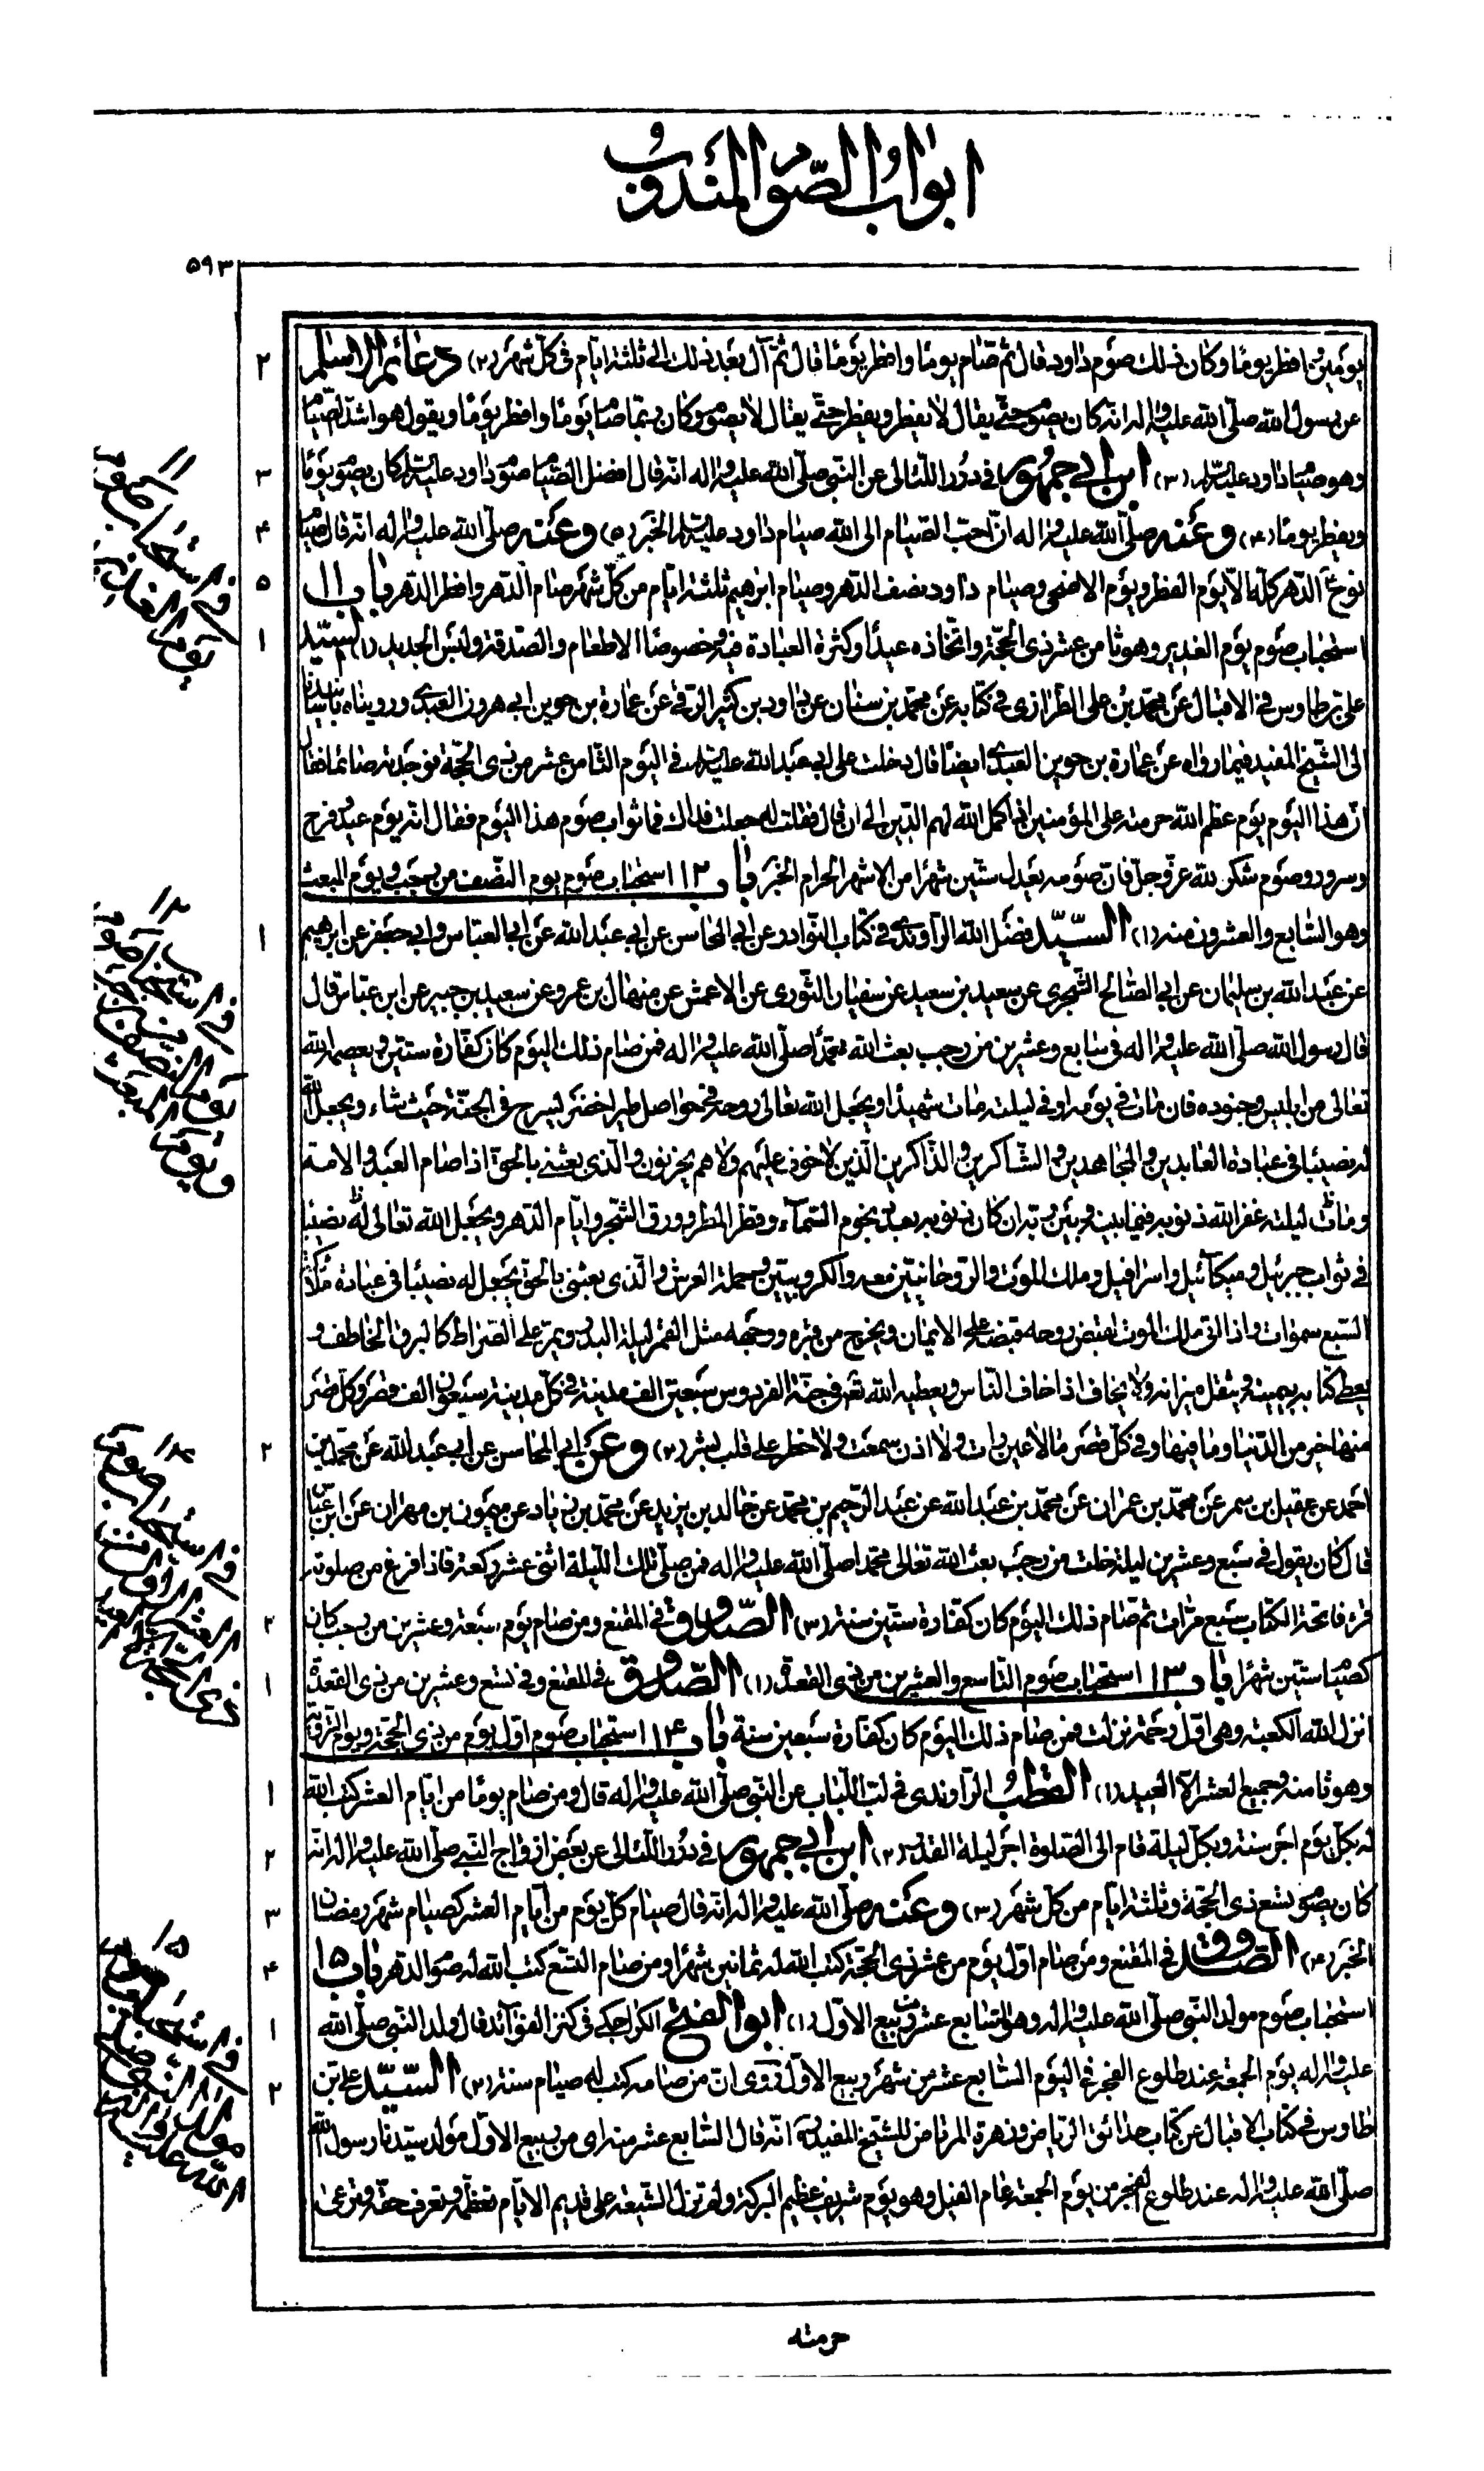 ابواب الصّوم المندوب
٥٩٣
يومين وافطر يوما وكان ذلك صوم داود قال ثم صام يوما وافطر يوما قال ثم آل بعد ذلك الى ثلثة ايام فى كل شهر (٢) دعائم الاسلام
عن رسول الله صلى الله عليه واله انه كان يصوم حتى يقال لا يفطر ويفطر حتى يقال لا يصوم وكان ربما صام يوما وافطر يوما ويقول هو اشد الصيام
وهو صيام داود عليه السلم (٣) ابن ابي جمهور فى درر اللئالى عن النبى صلى الله عليه واله انه قال افضل الصيام صوم داود عليه السلم كان يصوم يوما
ويفطر يوما (٤) وعنه صلى الله عليه واله ان احب الصيام الى الله صيام داود عليه السلم الخبر (٥) وعنه صلى الله عليه واله انه قال صيام
نوح ع الدهر كله الا يوم الفطر ويوم الاضحى وصيام داود نصف الدهر وصيام ابرهيم ثلثة ايام من كل شهر صام الدهر وافطر الدهر باب ١١
استحباب صوم يوم الغدير وهو ثامن عشر ذى الحجة واتخاذه عيدا وكثرة العبادة فيه وخصوصا الاطعام والصدقة ولبس الجديد (١) السيد
على بن طاوس فى الاقبال عن محمد بن على الطرازى فى كتابه عن محمد بن سنان عن داود بن كثير الرقى عن عمارة بن جوين ابى هرون العبدى ورويناه باسنادنا
الى الشيخ المفيد فيما رواه عن عمارة بن جوين العبدى ايضا قال دخلت على ابى عبد الله عليه السلم فى اليوم الثامن عشر من ذى الحجة فوجدته صائما فقال
ان هذا اليوم يوم عظم الله حرمته على المؤمنين اذ اكمل الله لهم الدين الى ان قال فقلت له جعلت فداك فما ثواب صوم هذا اليوم فقال انه يوم عيد وفرح
وسرور وصوم شكر لله عز وجل فان صومه يعدل ستين شهرا من الاشهر الحرام الخبر باب ١٢ استحباب صوم يوم النصف من رجب ويوم المبعث
وهو السابع والعشرون منه (١) السيد فضل الله الراوندى فى كتاب النوادر عن ابى المحاسن عن ابى عبد الله عن ابى العباس وابى جعفر عن ابرهيم
عن عبد الله بن سليمان عن ابى الصالح الشجرى عن سعيد بن سعيد عن سفيان الثورى عن الاعمش عن منهال بن عمرو عن سعيد بن جبير عن ابن عباس قال
قال رسول الله صلى الله عليه واله فى سابع وعشرين من رجب بعث الله محمدا صلى الله عليه واله فمن صام ذلك اليوم كان كفارة ستين ويعصمه الله
تعالى من ابليس وجنوده فان مات فى يومه او فى ليلته مات شهيدا ويجعل الله تعالى روحه فى حواصل طير اخضر ليسرح فى الجنة حيث شاء ويجعل الله
له نصيبا فى عبادة العابدين والمجاهدين والشاكرين والذاكرين الذين لا خوف عليهم ولا هم يحزنون والذى بعثنى بالحق اذا صام العبد والامة
ومات ليلته غفر الله ذنوبه فيما بينه وبين ربه وان كان ذنوبه بعدد نجوم السماء وقطر المطر وورق الشجر وايام الدهر ويجعل الله تعالى له نصيبا
فى ثواب جبرئيل وميكائيل واسرافيل وملك الموت والروحانيين معه والكروبيين وحملة العرش والذى بعثنى بالحق يجعل له نصيبا فى عبادة ملائكة
السبع سموات واذا اتى ملك الموت لقبض روحه قبضه على الايمان ويخرج من قبره ووجهه مثل القمر ليلة البدر ويمر على الصراط كالبرق الخاطف و
يعطى كتابه بيمينه ويثقل ميزانه ولا يخاف اذا خاف الناس ويعطيه الله تع فى جنة الفردوس سبعين الف مدينة فى كل مدينة سبعون الف قصر وكل قصر
منها خير من الدنيا وما فيها وفى كل قصر ما لا عين رات ولا اذن سمعت ولا خطر على قلب بشر (٢) وعن ابى المحاسن عن ابى عبد الله عن محمد بن
احمد عن عقيل بن سمر عن محمد بن عمران عن محمد بن عبد الله عن عبد الرحيم بن محمد عن خالد بن يزيد عن محمد بن زياد عن ميمون بن مهران عن ابن عباس
قال كان يقول فى سبع وعشرين ليلة خلت من رجب بعث الله تعالى محمدا صلى الله عليه واله فمن صلى تلك الليلة اثنى عشر ركعة فاذا فرغ من صلوته
قرء فاتحة الكتاب سبع مرات ثم صام ذلك اليوم كان كفارة ستين سنة (٣) الصدوق فى المقنع ومن صام يوم سبعة وعشرين من رجب كان
كصيام ستين شهرا باب ١٣ استحباب صوم التاسع والعشرين من ذى القعدة (١) الصدوق فى المقنع وفى تسع وعشرين من ذى القعدة
انزل الله الكعبة وهى اول رحمة نزلت فمن صام ذلك اليوم كان كفارة سبعين سنة باب ١٤ استحباب صوم اول يوم من ذى الحجة ويوم التروية
وهو ثامنه وجميع العشر الا العيد (١) القطب الراوندى فى لب اللباب عن النبى صلى الله عليه واله قال ومن صام يوما من ايام العشر كتب الله
له بكل يوم اجر سنة وبكل ليلة قام الى الصلوة اجر ليلة القدر (٢) ابن ابي جمهور فى درر اللئالى عن بعض ازواج النبى صلى الله عليه واله انه
كان يصوم تسع ذى الحجة وثلثة ايام من كل شهر (٣) وعنه صلى الله عليه واله انه قال صيام كل يوم من ايام العشر كصيام شهر رمضان
الخبر (٤) الصدوق فى المقنع ومن صام اول يوم من عشر ذى الحجة كتب الله له ثمانين شهرا ومن صام التسع كتب الله له صوم الدهر باب ١٥
استحباب صوم مولد النبى صلى الله عليه واله وهو السابع عشر من ربيع الاول (١) ابو الفتح الكراجكى فى كنز الفوائد قال ولد النبى صلى الله
عليه واله يوم الجمعة عند طلوع الفجر فى اليوم السابع عشر من شهر ربيع الاول وروى ان من صامه كتب له صيام سنة (٢) السيد على بن
طاوس فى كتاب الاقبال عن كتاب حدائق الرياض وزهرة المرتاض للشيخ المفيد ره انه قال السابع عشر منه اى من ربيع الاول مولد سيدنا رسول الله
صلى الله عليه واله عند طلوع الفجر من يوم الجمعة عام الفيل وهو يوم شريف عظيم البركة ولم تزل الشيعة على قديم الايام تعظمه وتعرف حقه وترعى
٢
٣
٤
٥
١
١
٢
٣
١
١
٢
٣
٤
١
٢
١١
فى استحباب صوم
يوم الغدير
١٢
فى استحباب صوم
يوم النصف من رجب
ويوم المبعث
١٤
فى استحباب صوم
١٥
فى استحباب صوم
مولد النبى صلى
الله عليه واله
حرمته